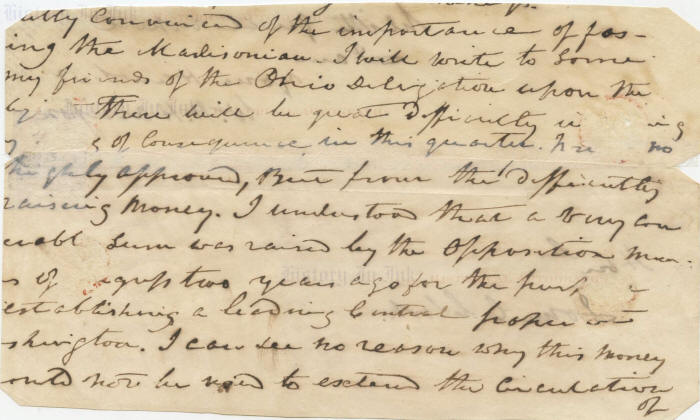 ally convinced of the importance of fos-
ing the Madisonian. I will write to Some
my friends of the Ohio delegation upon the
There will be great Difficulty ing
of Consequence in this quarter. no
highly approved, But from the difficulty
raising Money. I understood that a very con
erabl Sum was raised by the Opposition Mem-
s of two years ago for the purp
establishing a leading Central paper at
shington. I can see no reason why this Money
ould not be used to extend the Circulation
of